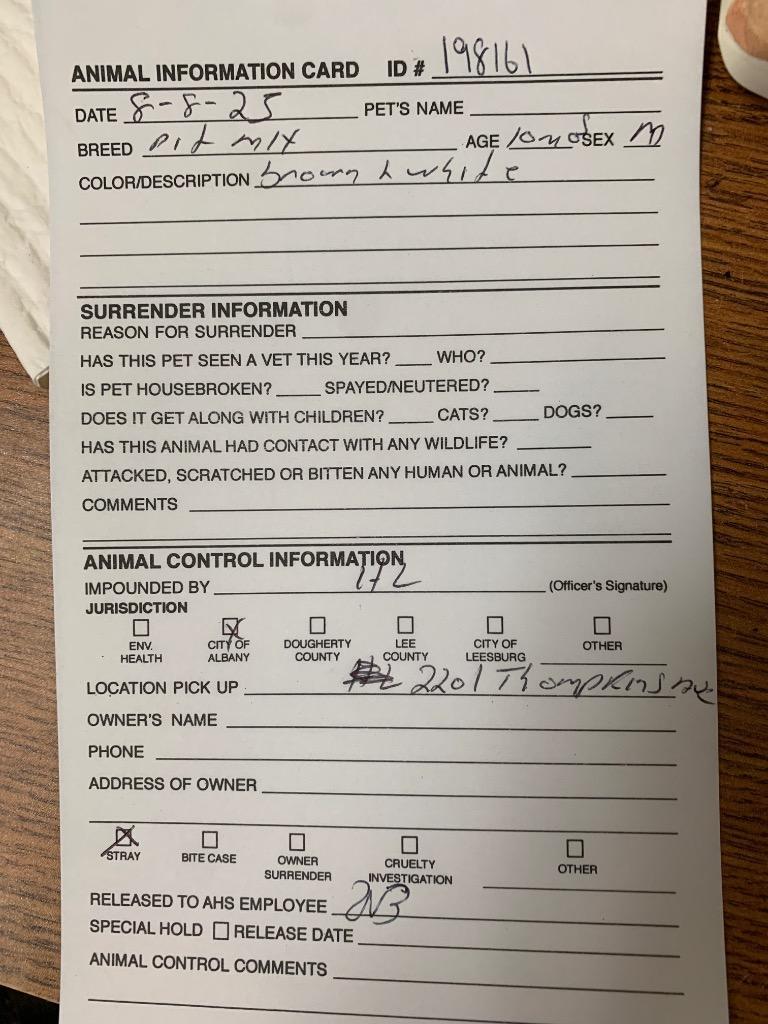 ANIMAL INFORMATION CARD ID # 198161
DATE 8-8-25 PET'S NAME
BREED pit mix AGE 10 mo SEX M
COLOR/DESCRIPTION brown & white
SURRENDER INFORMATION
REASON FOR SURRENDER
HAS THIS PET SEEN A VET THIS YEAR? WHO?
IS PET HOUSEBROKEN? SPAYED/NEUTERED?
DOES IT GET ALONG WITH CHILDREN? CATS? DOGS?
HAS THIS ANIMAL HAD CONTACT WITH ANY WILDLIFE?
ATTACKED, SCRATCHED OR BITTEN ANY HUMAN OR ANIMAL?
COMMENTS
ANIMAL CONTROL INFORMATION
IMPOUNDED BY (Officer's Signature)
JURISDICTION
ENV. HEALTH CITY OF ALBANY DOUGHERTY COUNTY LEE COUNTY CITY OF LEESBURG OTHER
LOCATION PICK UP 2201 Thompkins ave
OWNER'S NAME
PHONE
ADDRESS OF OWNER
STRAY BITE CASE OWNER SURRENDER CRUELTY INVESTIGATION OTHER
RELEASED TO AHS EMPLOYEE
SPECIAL HOLD RELEASE DATE
ANIMAL CONTROL COMMENTS